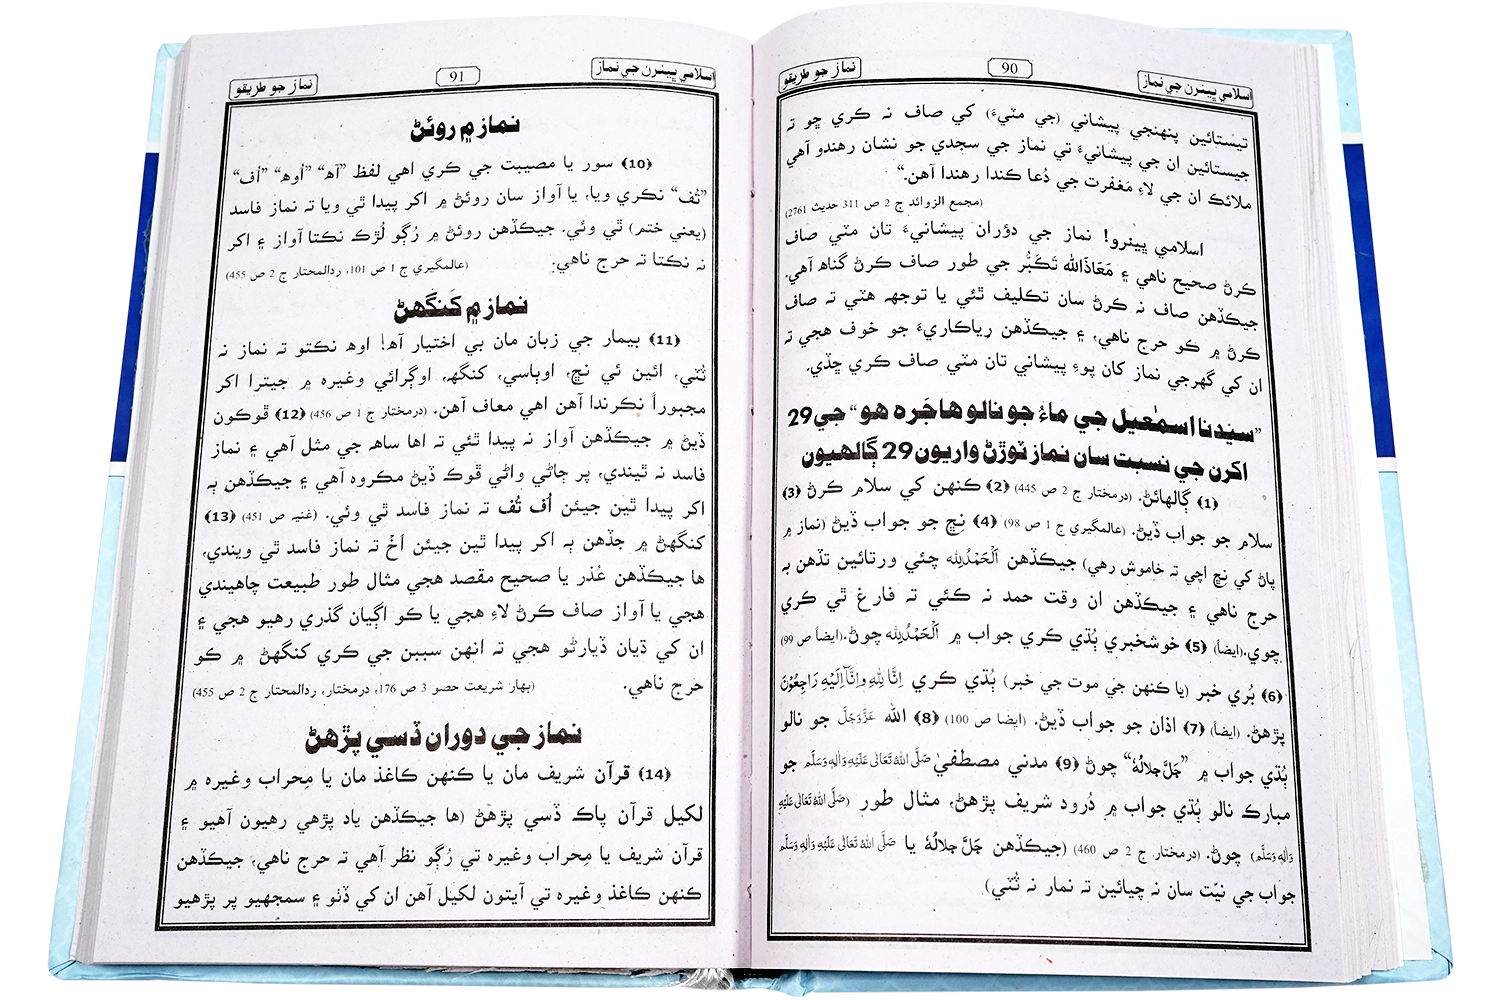 اسلامي ڀينرن جي نماز
90
نماز جو طريقو
تيستائين پنهنجي پيشاني (جي مٽيءَ) کي صاف نہ ڪري ڇو تہ
جيستائين ان جي پيشانيءَ تي نماز جي سجدي جو نشان رهندو آهي
ملائڪ ان جي لاءِ مَغفرت جي دُعا ڪندا رهندا آهن.“
(مجمع الزوائد ج 2 ص 311 حديث 2761)
اسلامي ڀينرو! نماز جي دؤران پيشانيءَ تان مٽي صاف
ڪرڻ صحيح ناهي ۽ مَعَاذَالله تَڪَبُّر جي طور صاف ڪرڻ گناھ آهي.
جيڪڏهن صاف نہ ڪرڻ سان تڪليف ٿئي يا توجھہ هٽي تہ صاف
ڪرڻ ۾ ڪو حرج ناهي، ۽ جيڪڏهن رياڪاريءَ جو خوف هجي تہ
ان کي گهرجي نماز کان پوءِ پيشاني تان مٽي صاف ڪري ڇڏي.
”سيّدنا اسمٰعيل جي ماءُ جو نالو هاجَرہ هو“ جي 29
اکرن جي نسبت سان نماز ٽوڙڻ واريون 29 ڳالهيون
﴿1﴾ ڳالهائڻ. (درمختار ج 2 ص 445) ﴿2﴾ ڪنهن کي سلام ڪرڻ ﴿3﴾
سلام جو جواب ڏيڻ. (عالمگيري ج 1 ص 98) ﴿4﴾ نِڇ جو جواب ڏيڻ (نماز ۾
پاڻ کي نِڇ اچي تہ خاموش رهي) جيڪڏهن اَلْحَمْدُلِلّٰه چئي ورتائين تڏهن بہ
حرج ناهي ۽ جيڪڏهن ان وقت حمد نہ ڪئي تہ فارغ ٿي ڪري
چوي.(ايضاً) ﴿5﴾ خوشخبري ٻُڌي ڪري جواب ۾ اَلْحَمْدُلِلّٰه چوڻ.(ايضاً ص 99)
﴿6﴾ بُري خبر (يا ڪنهن جي موت جي خبر) ٻُڌي ڪري اِنَّا لِلّٰهِ وَاِنَّآ اِلَيْهِ رَاجِعُوْنَ
پڙهڻ. (ايضاً) ﴿7﴾ اذان جو جواب ڏيڻ. (ايضا ص 100) ﴿8﴾ الله عَزَّوَجَلَّ جو نالو
ٻُڌي جواب ۾ ”جَلَّ جَلَالُهٗ“ چوڻ ﴿9﴾ مدني مصطفيٰ صَلَّى اللهُ تَعَالٰى عَلَيْهِ وَاٰلِهٖ وَسَلَّم جو
مبارڪ نالو ٻُڌي جواب ۾ دُرود شريف پڙهڻ، مثال طور (صَلَّى اللهُ تَعَالٰى عَلَيْهِ
وَاٰلِهٖ وَسَلَّم) چوڻ. (درمختار ج 2 ص 460) (جيڪڏهن جَلَّ جَلَالُهٗ يا صَلَّى اللهُ تَعَالٰى عَلَيْهِ وَاٰلِهٖ وَسَلَّم
جواب جي نيّت سان نہ چيائين تہ نمار نہ ٽُٽي)
اسلامي ڀينرن جي نماز
91
نماز جو طريقو
نماز ۾ روئڻ
﴿10﴾ سور يا مصيبت جي ڪري اهي لفظ ”آھ“ ”اُوھ“ ”اُف“
”تُف“ نڪري ويا، يا آواز سان روئڻ ۾ اکر پيدا ٿي ويا تہ نماز فاسد
(يعني ختم) ٿي وئي. جيڪڏهن روئڻ ۾ رُڳو لُڙڪ نڪتا آواز ۽ اکر
نہ نڪتا تہ حرج ناهي. (عالمگيري ج 1 ص 101، ردالمحتار ج 2 ص 455)
نماز ۾ کَنگَهڻ
﴿11﴾ بيمار جي زبان مان بي اختيار آھ! اوھ نڪتو تہ نماز نہ
ٽُٽي، ائين ئي نڇ، اوٻاسي، کنگھہ، اوڳرائي وغيرہ ۾ جيترا اکر
مجبوراً نڪرندا آهن اهي معاف آهن. (درمختار ج 1 ص 456) ﴿12﴾ ڦوڪون
ڏيڻ ۾ جيڪڏهن آواز نہ پيدا ٿئي تہ اها ساھہ جي مثل آهي ۽ نماز
فاسد نہ ٿيندي، پر ڄاڻي واڻي ڦوڪ ڏيڻ مڪروہ آهي ۽ جيڪڏهن ٻہ
اکر پيدا ٿين جيئن اُف تُف تہ نماز فاسد ٿي وئي. (غنيہ ص 451) ﴿13﴾
کنگهڻ ۾ جڏهن ٻہ اکر پيدا ٿين جيئن اَخْ تہ نماز فاسد ٿي ويندي،
ها جيڪڏهن عُذر يا صحيح مقصد هجي مثال طور طبيعت چاهيندي
هجي يا آواز صاف ڪرڻ لاءِ هجي يا ڪو اڳيان گذري رهيو هجي ۽
ان کي ڌيان ڏيارڻو هجي تہ انهن سببن جي ڪري کنگهڻ ۾ ڪو
حرج ناهي. (بهار شريعت حصو 3 ص 176، درمختار، ردالمحتار ج 2 ص 455)
نماز جي دوران ڏسي پڙهڻ
﴿14﴾ قرآن شريف مان يا ڪنهن ڪاغذ مان يا مِحراب وغيرہ ۾
لکيل قرآن پاڪ ڏسي پڙهڻ (ها جيڪڏهن ياد پڙهي رهيون آهيو ۽
قرآن شريف يا مِحراب وغيرہ تي رُڳو نظر آهي تہ حرج ناهي، جيڪڏهن
ڪنهن ڪاغذ وغيرہ تي آيتون لکيل آهن ان کي ڏٺو ۽ سمجهيو پر پڙهيو